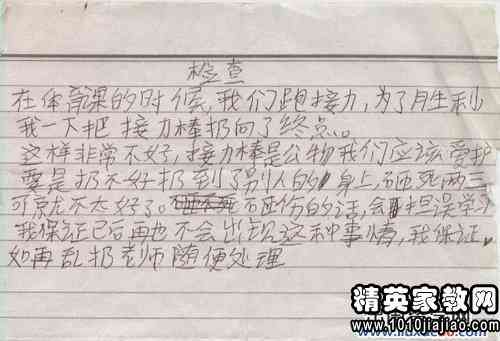 检查
在体育课的时候,我们跑接力,为了胜利
我一下把接力棒扔向了终点。
这样非常不好,接力棒是公物我们应该爱护
要是扔不好扔到了别人的身上,砸死两三
可就不太好了。砸伤的话,会担误学习
我保证已后再也不会出现这种事情,我保证
如再乱扔老师随便处理
精英家教网
www.1010jiajiao.com